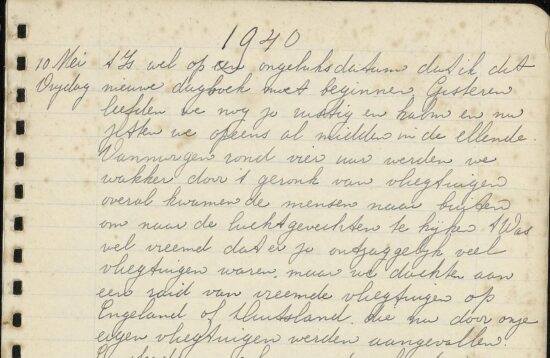 1940
10 Mei 't Is wel op een ongeluksdatum dat ik dat
Vrijdag nieuwe dagboek moet beginnen. Gisteren
leefden we nog zo rustig en kalm en nu
zitten we opeens al midden in de ellende.
Vanmorgen rond vier uur werden we
wakker door 't geronk van vliegtuigen
overal kwamen de mensen naar buiten
om naar de luchtgevechten te kijken. 't Was
wel vreemd dat er zo ontzaggelijk veel
vliegtuigen waren, maar we dachten aan
een raid van vreemde vliegtuigen op
Engeland of Duitsland, die nu door onze
eigen vliegtuigen werden aangevallen.